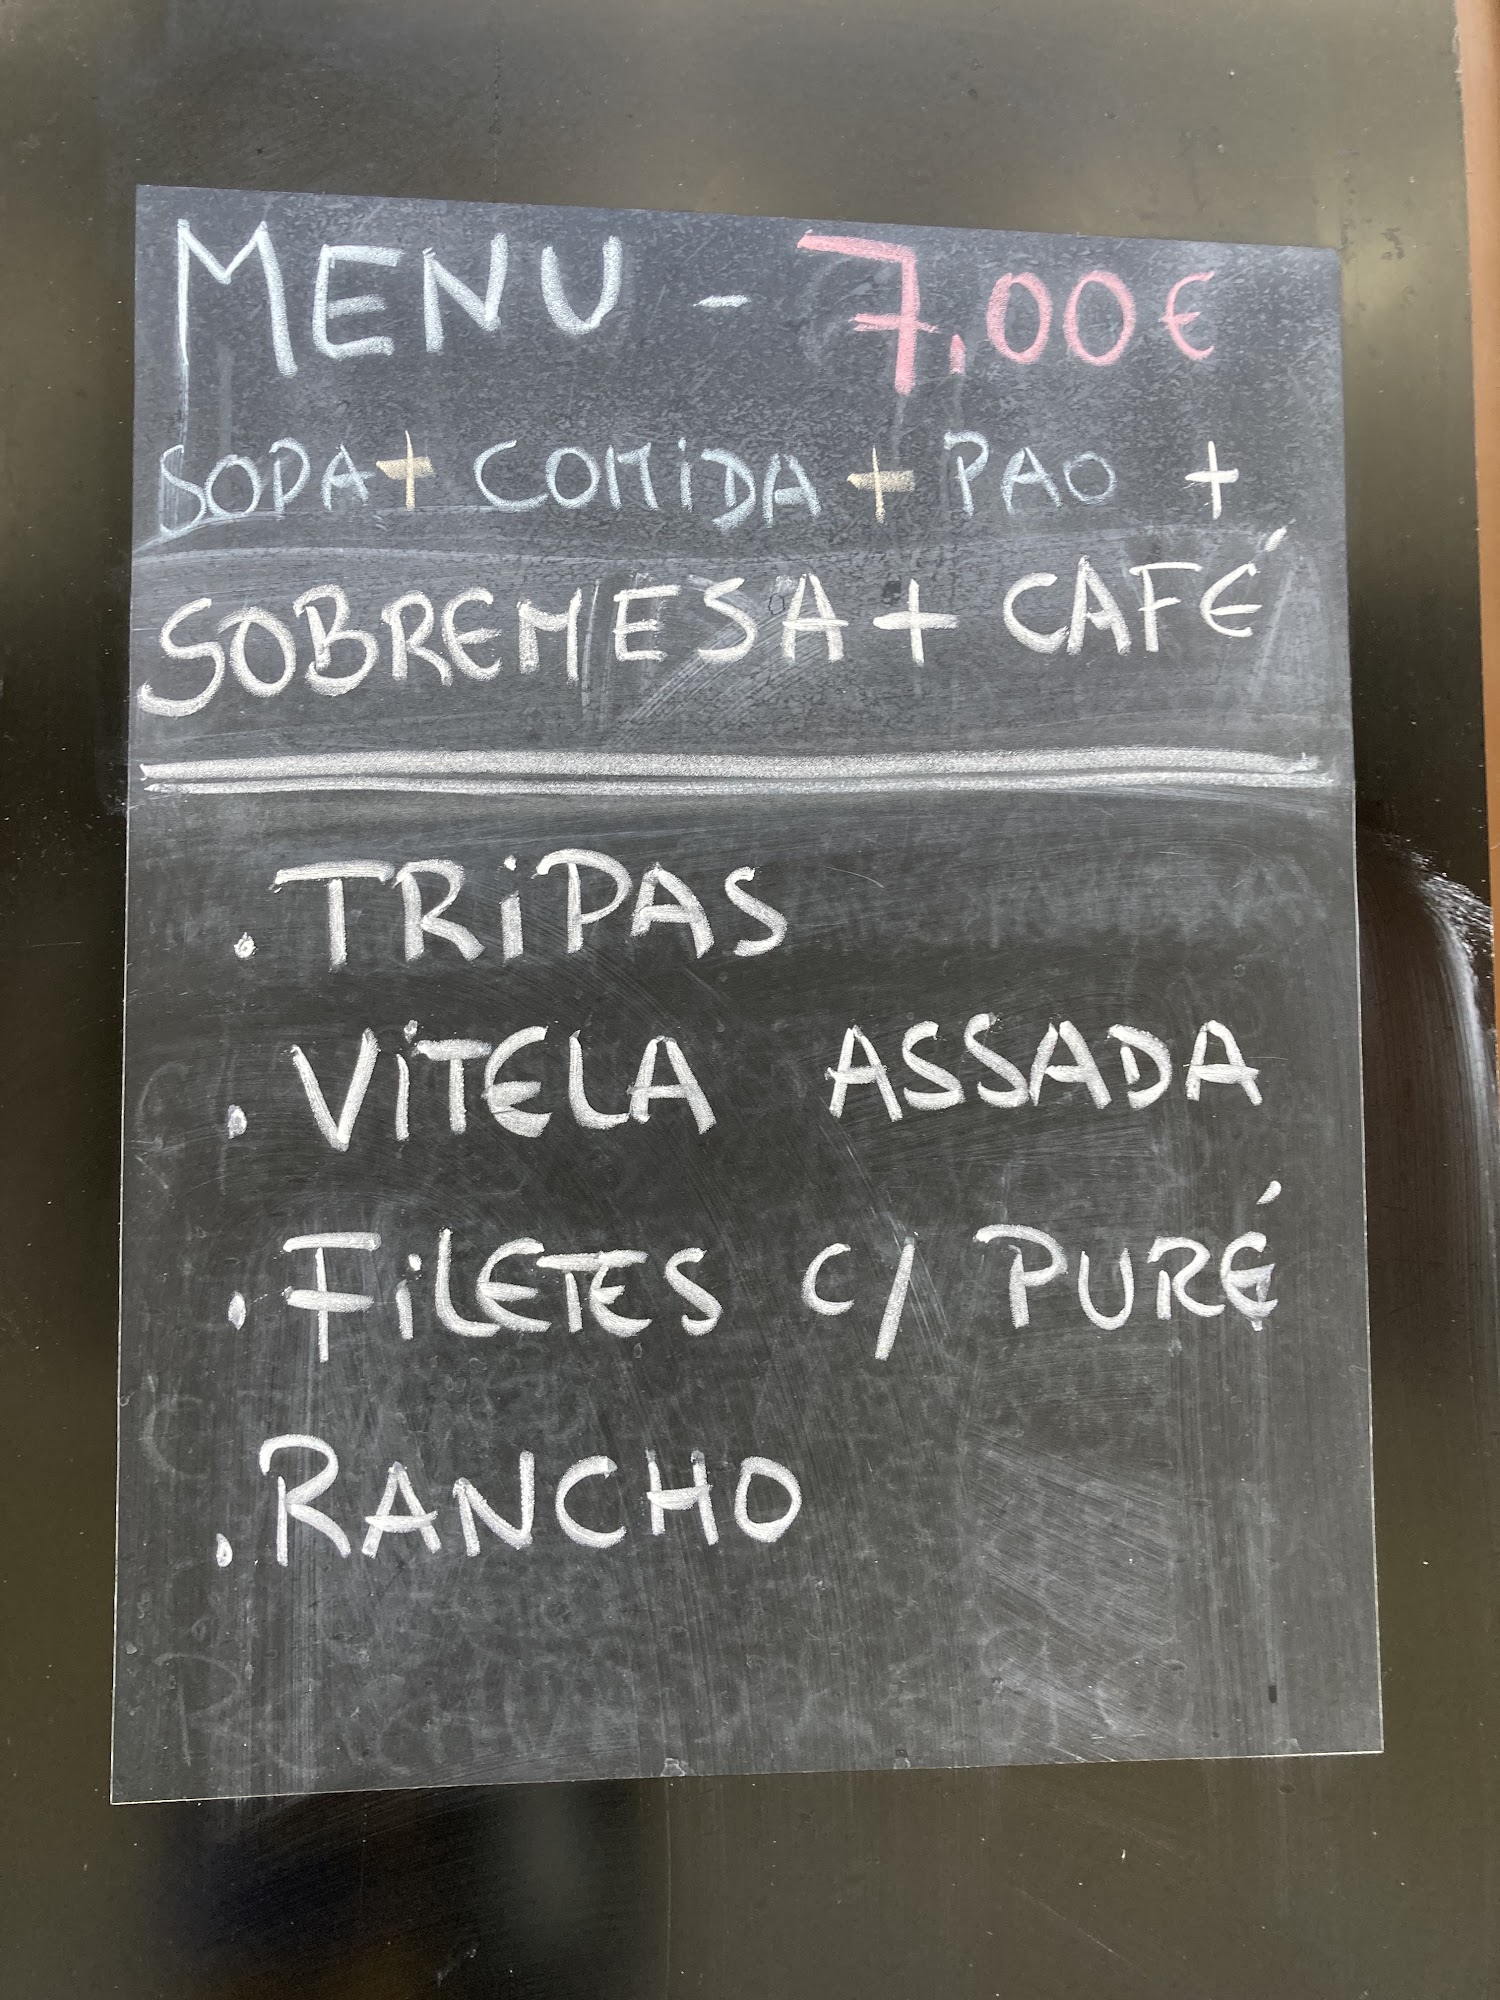 MENU - 7,00€
SOPA + COMIDA + PAO +
SOBREMESA + CAFÉ
. TRIPAS
. VITELA ASSADA
. FILETES C/ PURÉ
. RANCHO